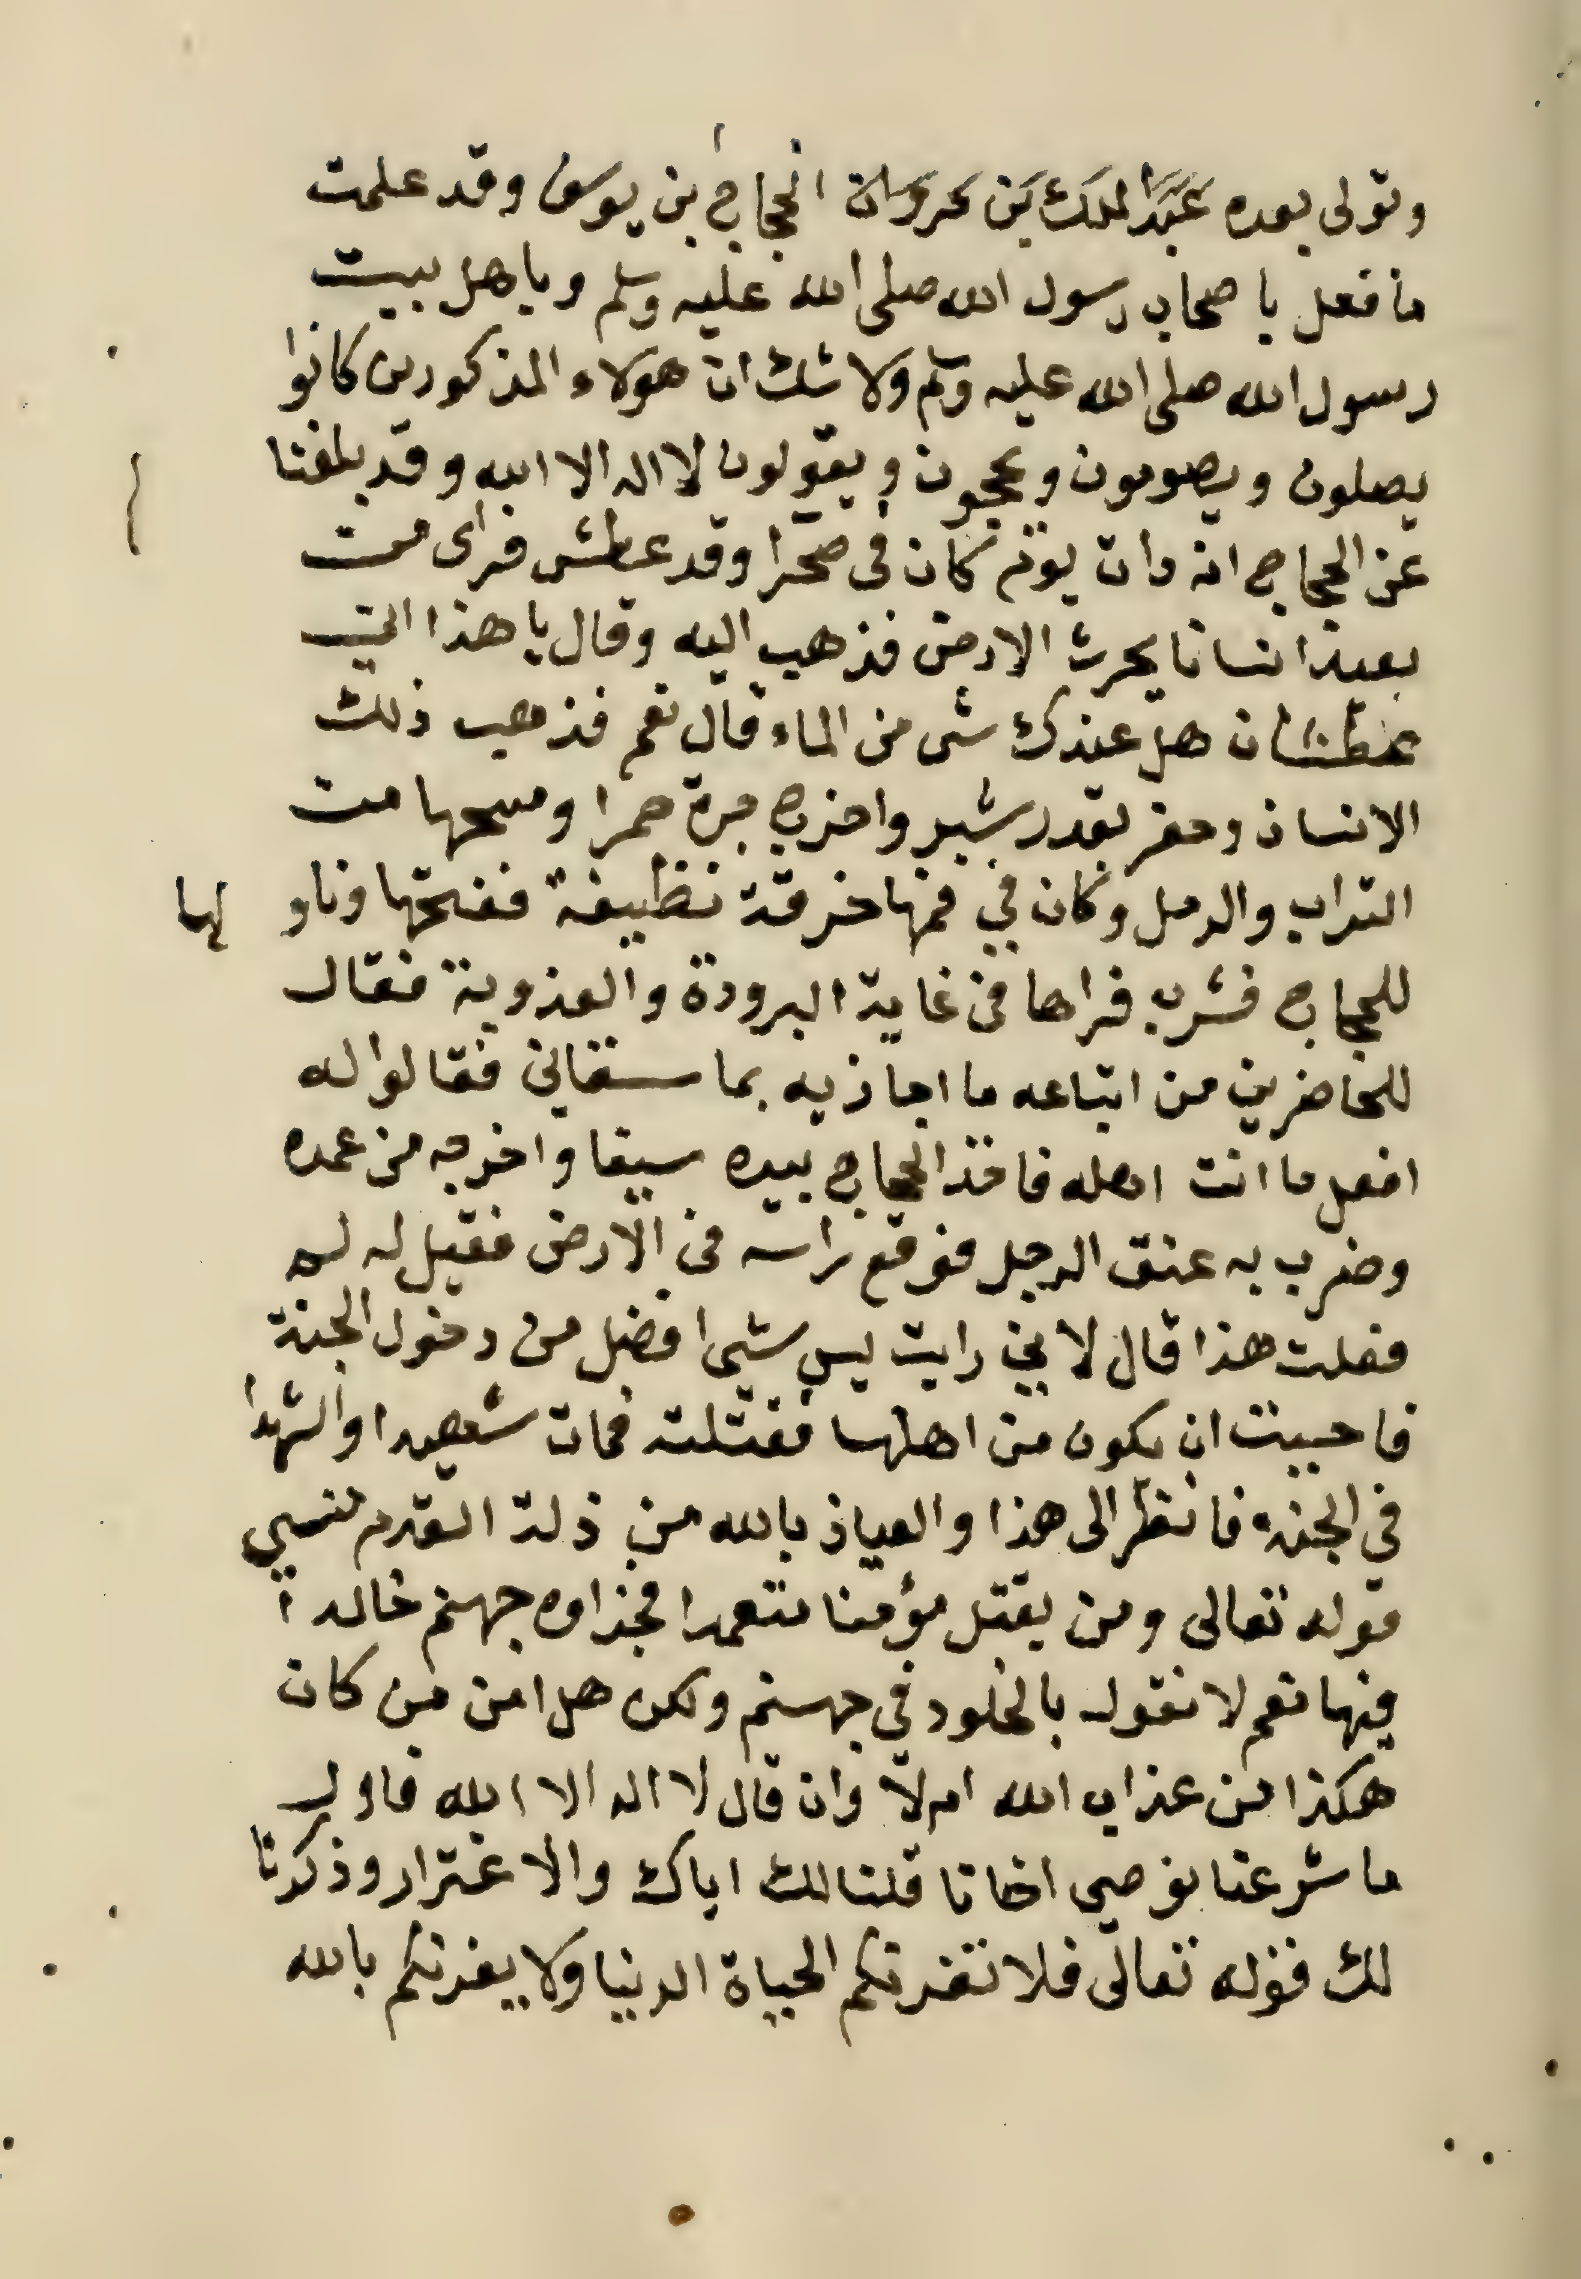 وتولى بعده عبد الملك بن مروان الحجاج بن يوسف وقد علمت
ما فعل باصحاب رسول الله صلى الله عليه وسلم وباهل بيت
رسول الله صلى الله عليه وسلم ولا شك ان هولاء المذكورين كانوا
يصلون ويصومون ويحجون ويقولون لا اله الا الله وقد بلغنا
عن الحجاج انه ذات يوم كان في صحرا وقد عطش فراى من
بعيد انسانا يحرث الارض فذهب اليه وقال يا هذا اني
عطشان هل عندك شى من الماء قال نعم فذهب ذلك
الانسان وحفر بقدر شبر واخرج جرة حمرا ومسحها من
التراب والرمل وكان في فمها خرقة نظيفة ففتحها وناولها
للحجاج فشرب فراها في غاية البرودة والعذوبة فقال
للحاضرين من اتباعه ما اجازيه بما سقاني فقالوا له
افعل ما انت اهله فاخذ الحجاج بيده سيفا واخرجه من غمده
وضرب به عنق الرجل فوقع راسه في الارض فقيل له لم
فعلت هذا قال لاني رايت ليس شى افضل من دخول الجنة
فاحببت ان يكون من اهلها فقتلته فمات شهيدا والشهدا
في الجنة فانظر الى هذا والعياذ بالله من زلة القدم نسي
قوله تعالى ومن يقتل مؤمنا متعمدا فجزاوه جهنم خالدا
فيها نعم لا نقول بالخلود في جهنم ولكن هل امن من كان
هكذا من عذاب الله ام لا وان قال لا اله الا الله فاول
ما شرعنا نوصي اخانا قلنا لك اياك والاغترار وذكرنا
لك قوله تعالى فلا تغرنكم الحياة الدنيا ولا يغرنكم بالله